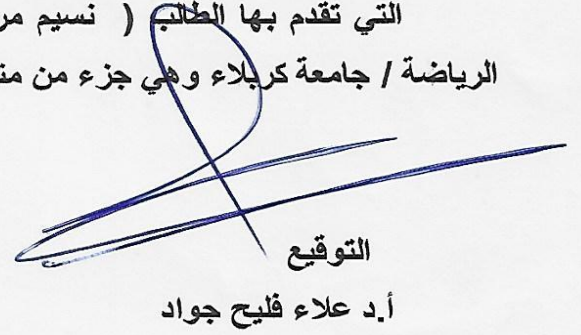 التي تقدم بها الطالب ( نسيم
الرياضة / جامعة كربلاء وهي جزء من
التوقيع
أ.د علاء فليح جواد